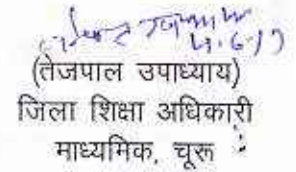 4.6.19
(तेजपाल उपाध्याय)
जिला शिक्षा अधिकारी
माध्यमिक, चूरू